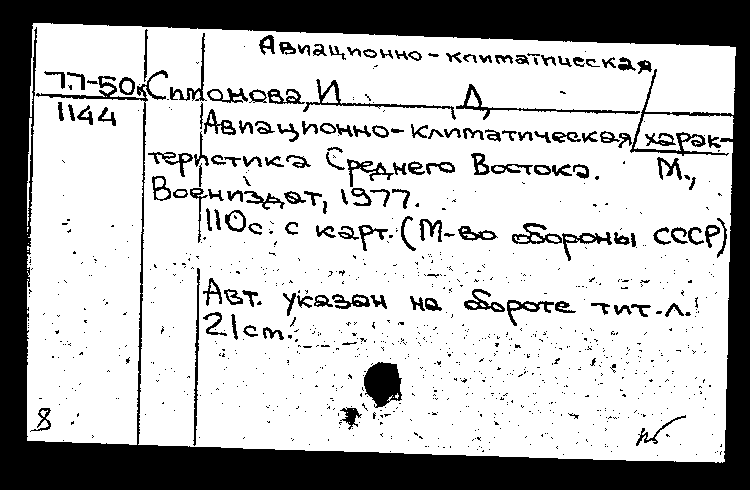 Авиационно-климатическая
77-50к Симонова, И. Д.
1144 Авиационно-климатическая харак-
теристика Среднего Востока. М.,
Воениздат, 1977.
110с. с карт. (М-во обороны СССР)
Авт. указан на обороте тит. л.
21см.
8